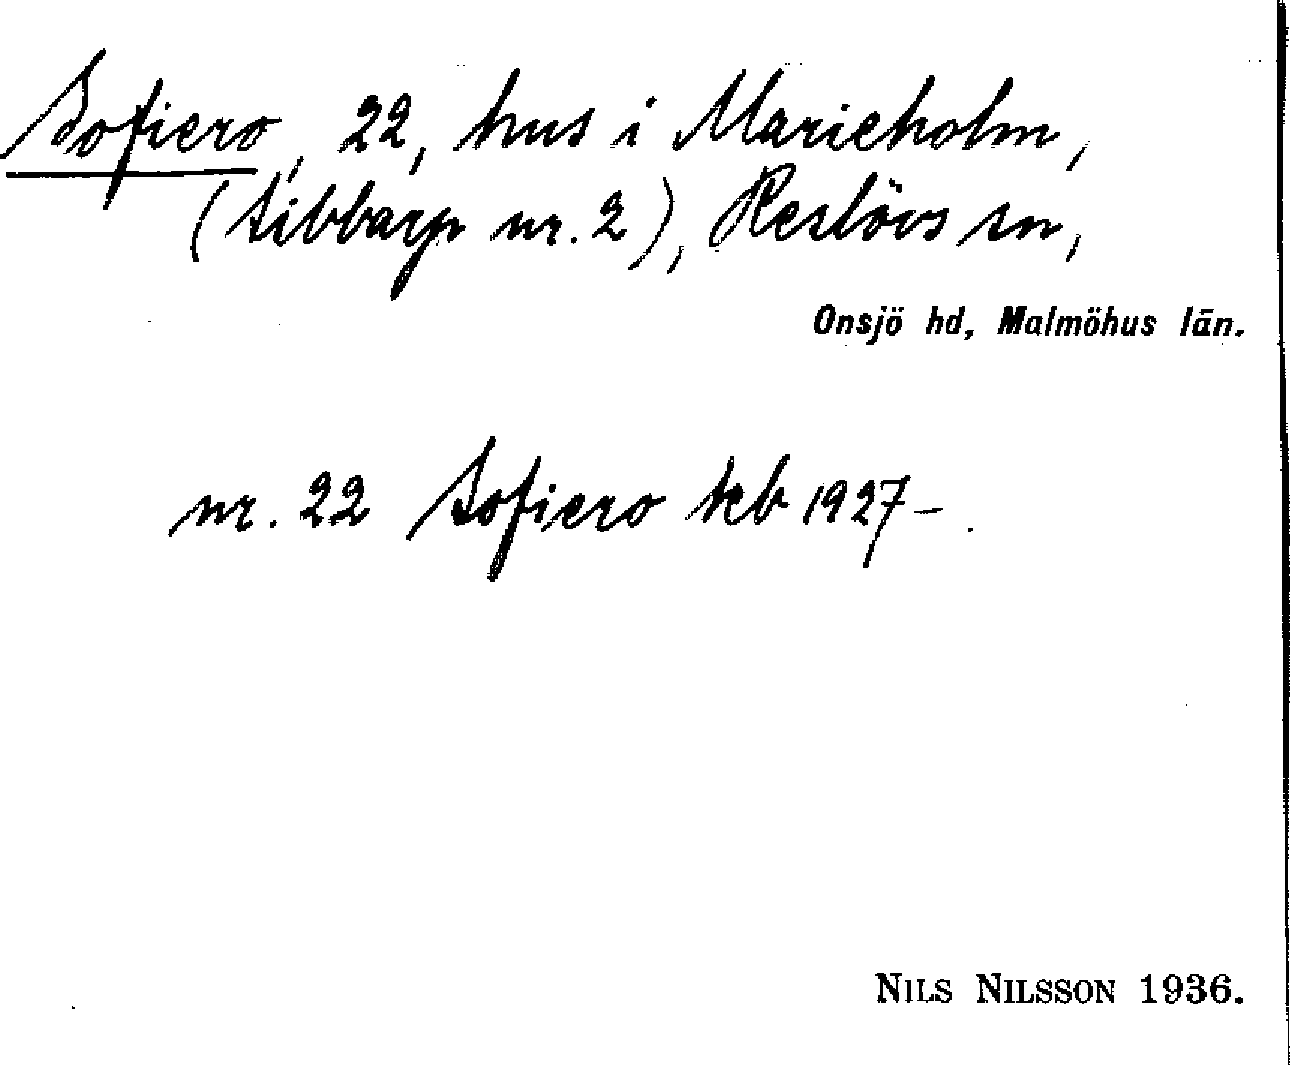 Sofiero, 22, hus i Marieholm,
(Sibbarp nr. 2), Reslövs sn,
Onsjö hd, Malmöhus län.
nr. 22 Sofiero kb 1927-.
NILS NILSSON 1936.